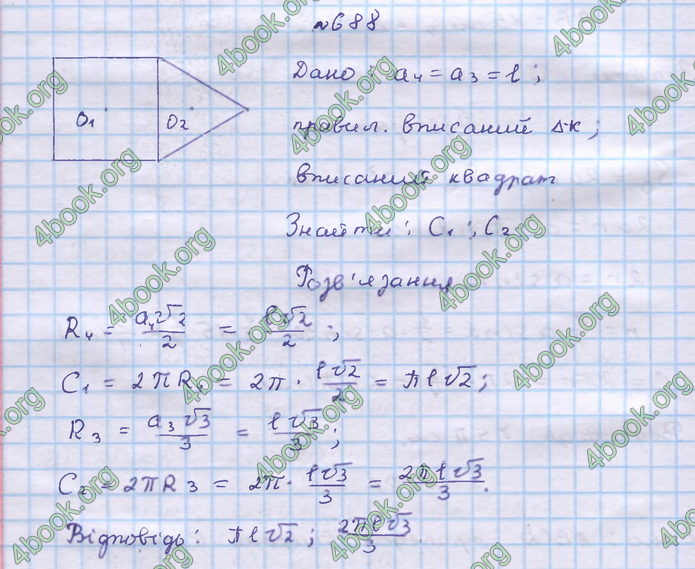 №688
Дано: a₄ = a₃ = l;
правил. вписаний Δ-к;
O₁ O₂
вписаний квадрат
Знайти: C₁; C₂
Розв'язання
R₄ = a₄√2/2 = l√2/2;
C₁ = 2πR₄ = 2π · l√2/2 = πl√2;
R₃ = a₃√3/3 = l√3/3;
C₂ = 2πR₃ = 2π · l√3/3 = 2πl√3/3.
Відповідь: πl√2; 2πl√3/3.
4book.org